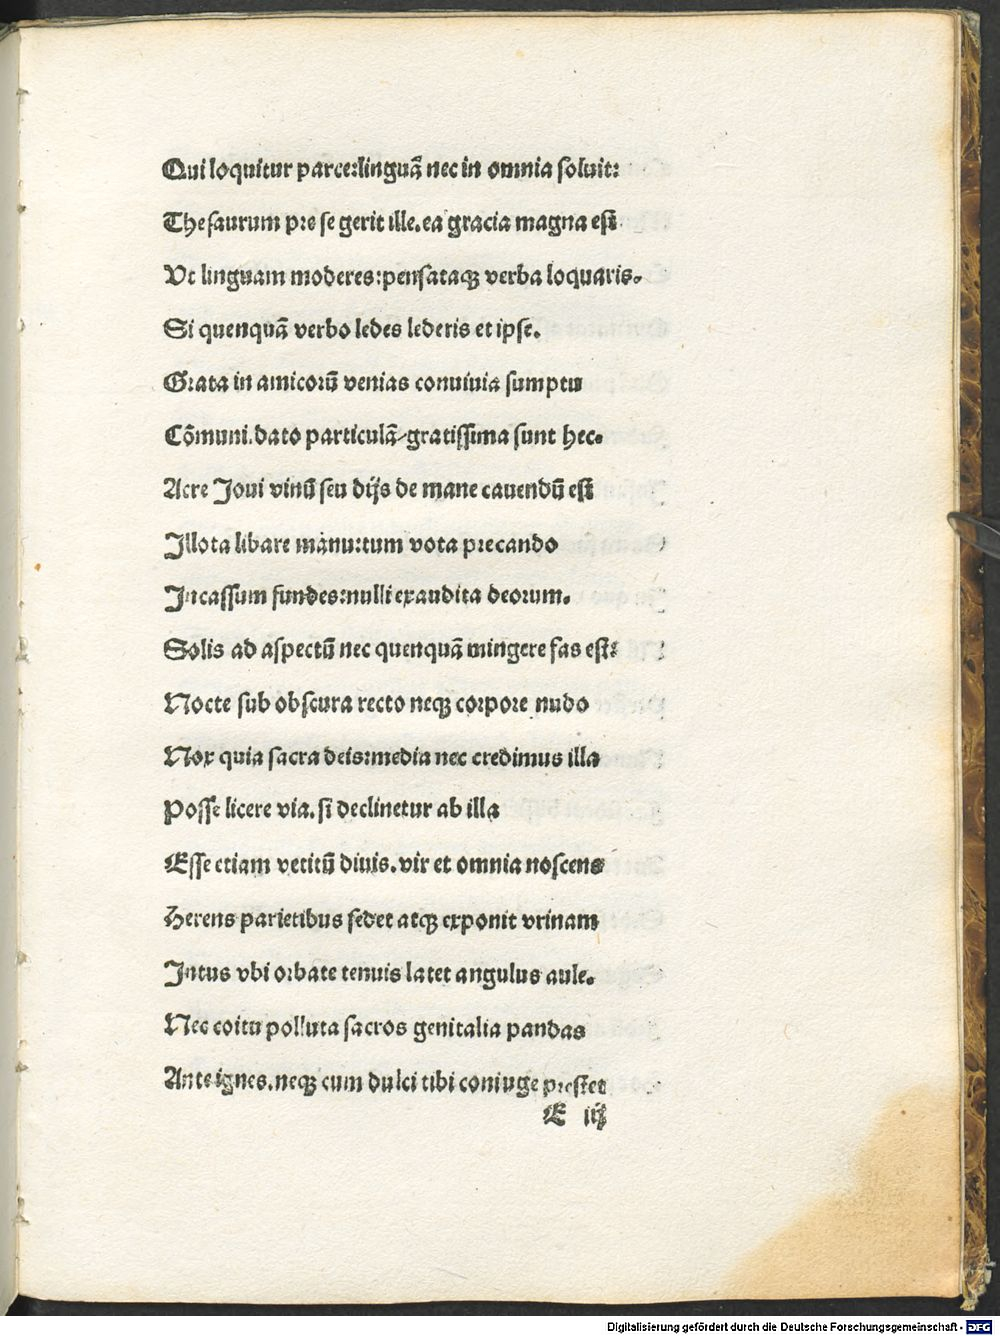 Qui loquitur parce:linguã nec in omnia soluit:
Thesaurum pre se gerit ille.ea gracia magna est
Vt linguam moderes:pensataqꝫ verba loquaris.
Si quenquã verbo ledes lederis et ipse.
Grata in amicorũ venias conuiuia sumptu
Cõmuni.dato particulã/gratissima sunt hec.
Acre Joui vinũ seu dijs de mane cauendũ est
Illota libare manu:tum vota precando
Incassum fundes:nulli exaudita deorum.
Solis ad aspectũ nec quenquã mingere fas est:
Nocte sub obscura recto neqꝫ corpore nudo
Nox quia sacra deis:media nec credimus illa
Posse licere via.si declinetur ab illa
Esse etiam vetitũ diuis.vir et omnia noscens
Herens parietibus sedet atqꝫ exponit vrinam
Intus vbi orbate tenuis latet angulus aule.
Nec coitu polluta sacros genitalia pandas
Ante ignes.neqꝫ cum dulci tibi coniuge prestet
E iij
Digitalisierung gefördert durch die Deutsche Forschungsgemeinschaft - DFG